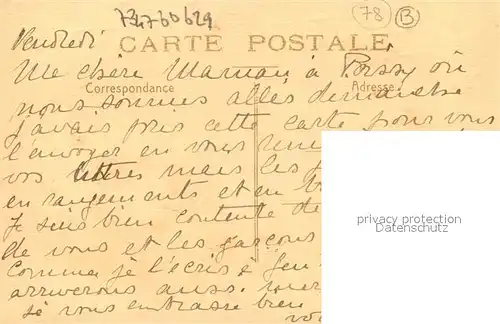 73476b629
78
B
Vendredi
CARTE POSTALE
Ma chère Maman, à Poissy où
Correspondance
Adresse
nous sommes allés dimanche
j'avais pris cette carte pour vous
l'envoyer en vous
vos lettres mais les
en rangements et en
Je suis bien contente de
de vous et les garçons
Comme je l'écris à
arriverons aussi
je vous embrasse bien
privacy protection
Datenschutz